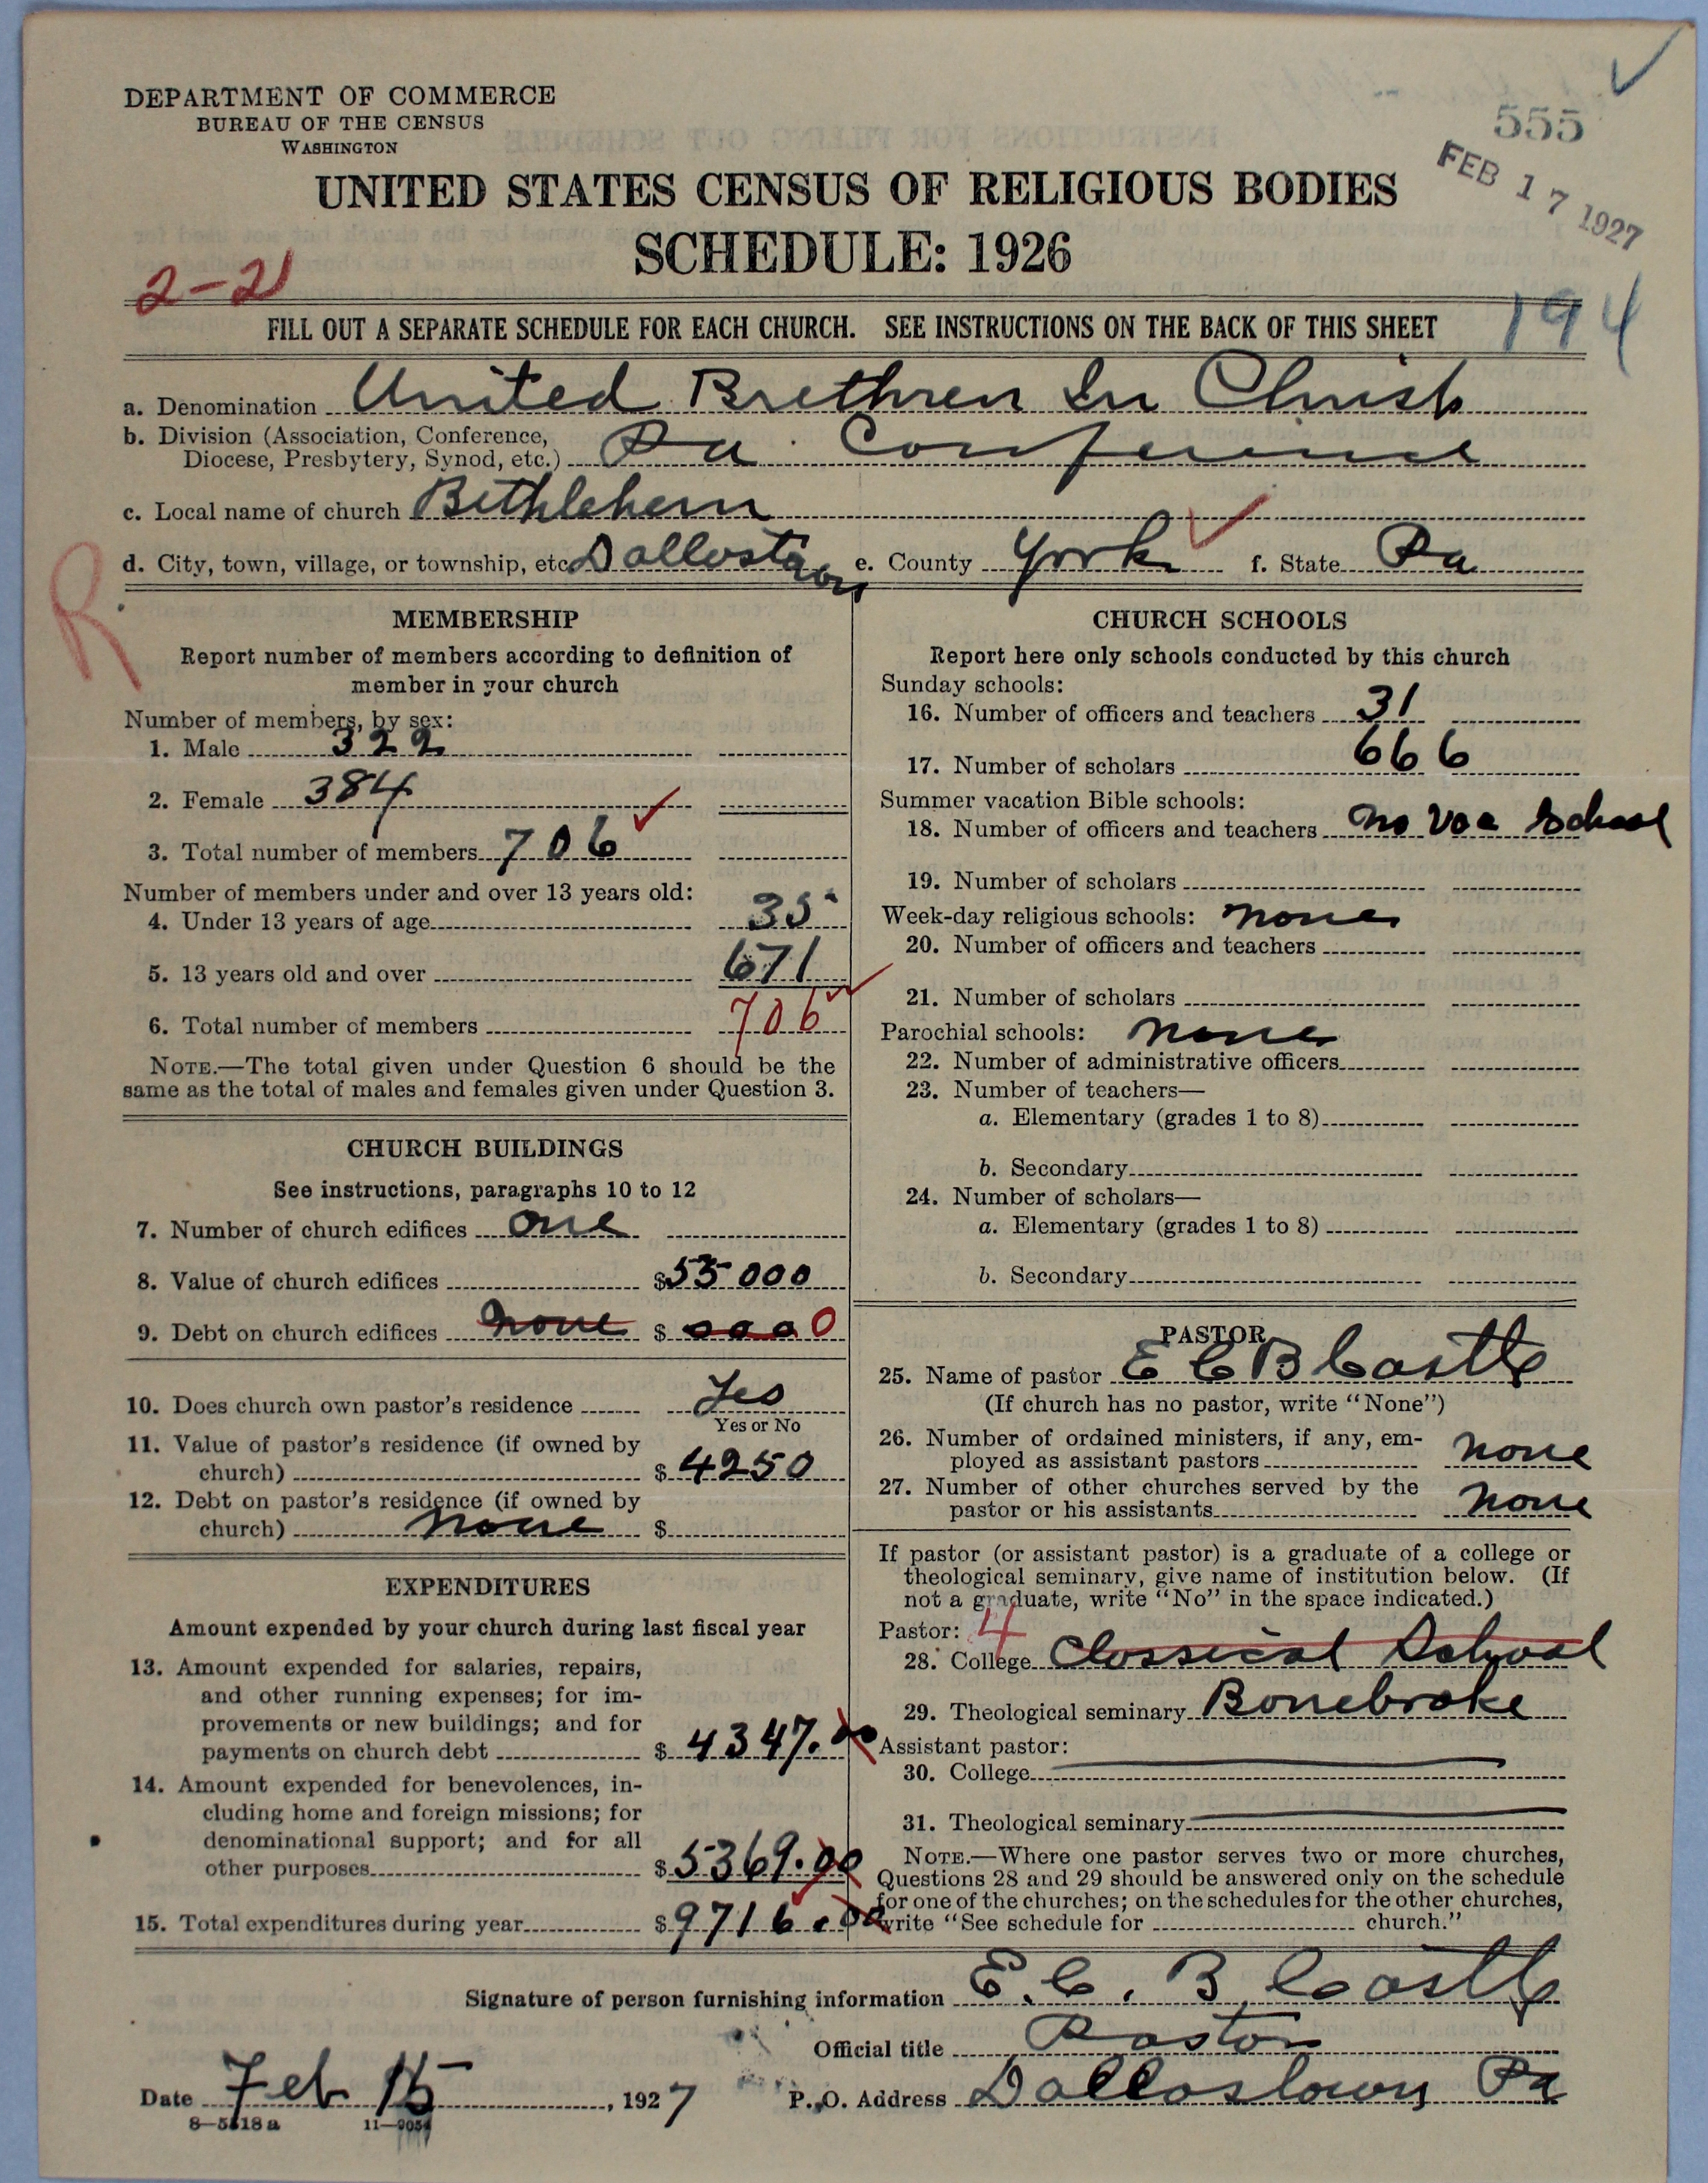 DEPARTMENT OF COMMERCE
BUREAU OF THE CENSUS
WASHINGTON
555
FEB 17 1927
UNITED STATES CENSUS OF RELIGIOUS BODIES
SCHEDULE: 1926
2-21
194
FILL OUT A SEPARATE SCHEDULE FOR EACH CHURCH. SEE INSTRUCTIONS ON THE BACK OF THIS SHEET
a. Denomination United Brethren In Christ
b. Division (Association, Conference,
Diocese, Presbytery, Synod, etc.) Pa. Conference
c. Local name of church Bethlehem
d. City, town, village, or township, etc. Dallostown e. County York f. State Pa
R
MEMBERSHIP
Report number of members according to definition of
member in your church
Number of members, by sex:
1. Male 322
2. Female 384
3. Total number of members 706
Number of members under and over 13 years old:
4. Under 13 years of age 35
5. 13 years old and over 671
6. Total number of members 706
NOTE.—The total given under Question 6 should be the
same as the total of males and females given under Question 3.
CHURCH BUILDINGS
See instructions, paragraphs 10 to 12
7. Number of church edifices one
8. Value of church edifices $55000
9. Debt on church edifices none $ 0000
10. Does church own pastor's residence Yes
Yes or No
11. Value of pastor's residence (if owned by
church) $ 4250
12. Debt on pastor's residence (if owned by
church) none $
EXPENDITURES
Amount expended by your church during last fiscal year
13. Amount expended for salaries, repairs,
and other running expenses; for im-
provements or new buildings; and for
payments on church debt $ 4347.00
14. Amount expended for benevolences, in-
cluding home and foreign missions; for
denominational support; and for all
other purposes $5369.00
15. Total expenditures during year $9716.00
CHURCH SCHOOLS
Report here only schools conducted by this church
Sunday schools:
16. Number of officers and teachers 31
17. Number of scholars 666
Summer vacation Bible schools:
18. Number of officers and teachers no Vac School
19. Number of scholars
Week-day religious schools: none
20. Number of officers and teachers
21. Number of scholars
Parochial schools: none
22. Number of administrative officers
23. Number of teachers—
a. Elementary (grades 1 to 8)
b. Secondary
24. Number of scholars—
a. Elementary (grades 1 to 8)
b. Secondary
PASTOR
25. Name of pastor E C B Castle
(If church has no pastor, write "None")
26. Number of ordained ministers, if any, em-
ployed as assistant pastors none
27. Number of other churches served by the
pastor or his assistants none
If pastor (or assistant pastor) is a graduate of a college or
theological seminary, give name of institution below. (If
not a graduate, write "No" in the space indicated.)
Pastor: 4
28. College Classical School
29. Theological seminary Bonebrake
Assistant pastor:
30. College
31. Theological seminary
NOTE.—Where one pastor serves two or more churches,
Questions 28 and 29 should be answered only on the schedule
for one of the churches; on the schedules for the other churches,
write "See schedule for church."
Signature of person furnishing information E. C. B. Castle
Official title Pastor
Date Feb 15, 1927 P. O. Address Dallostown Pa
8—5418a 11—9054